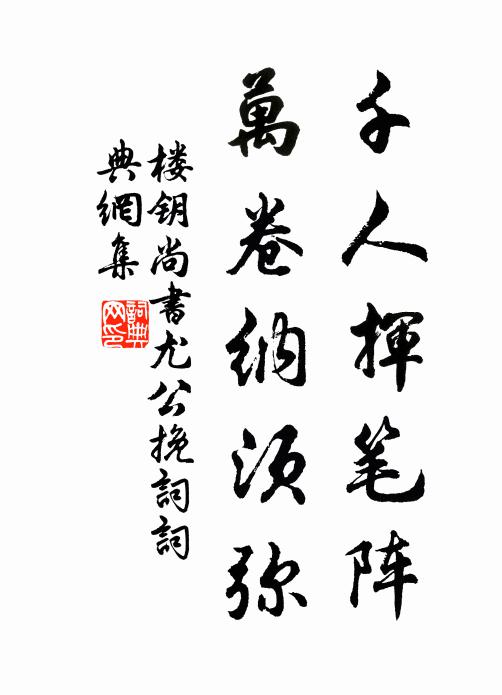 千人揮笔阵
萬卷纳须弥
楼钥尚書尤公挽詞詞
典網集
詞典
网印